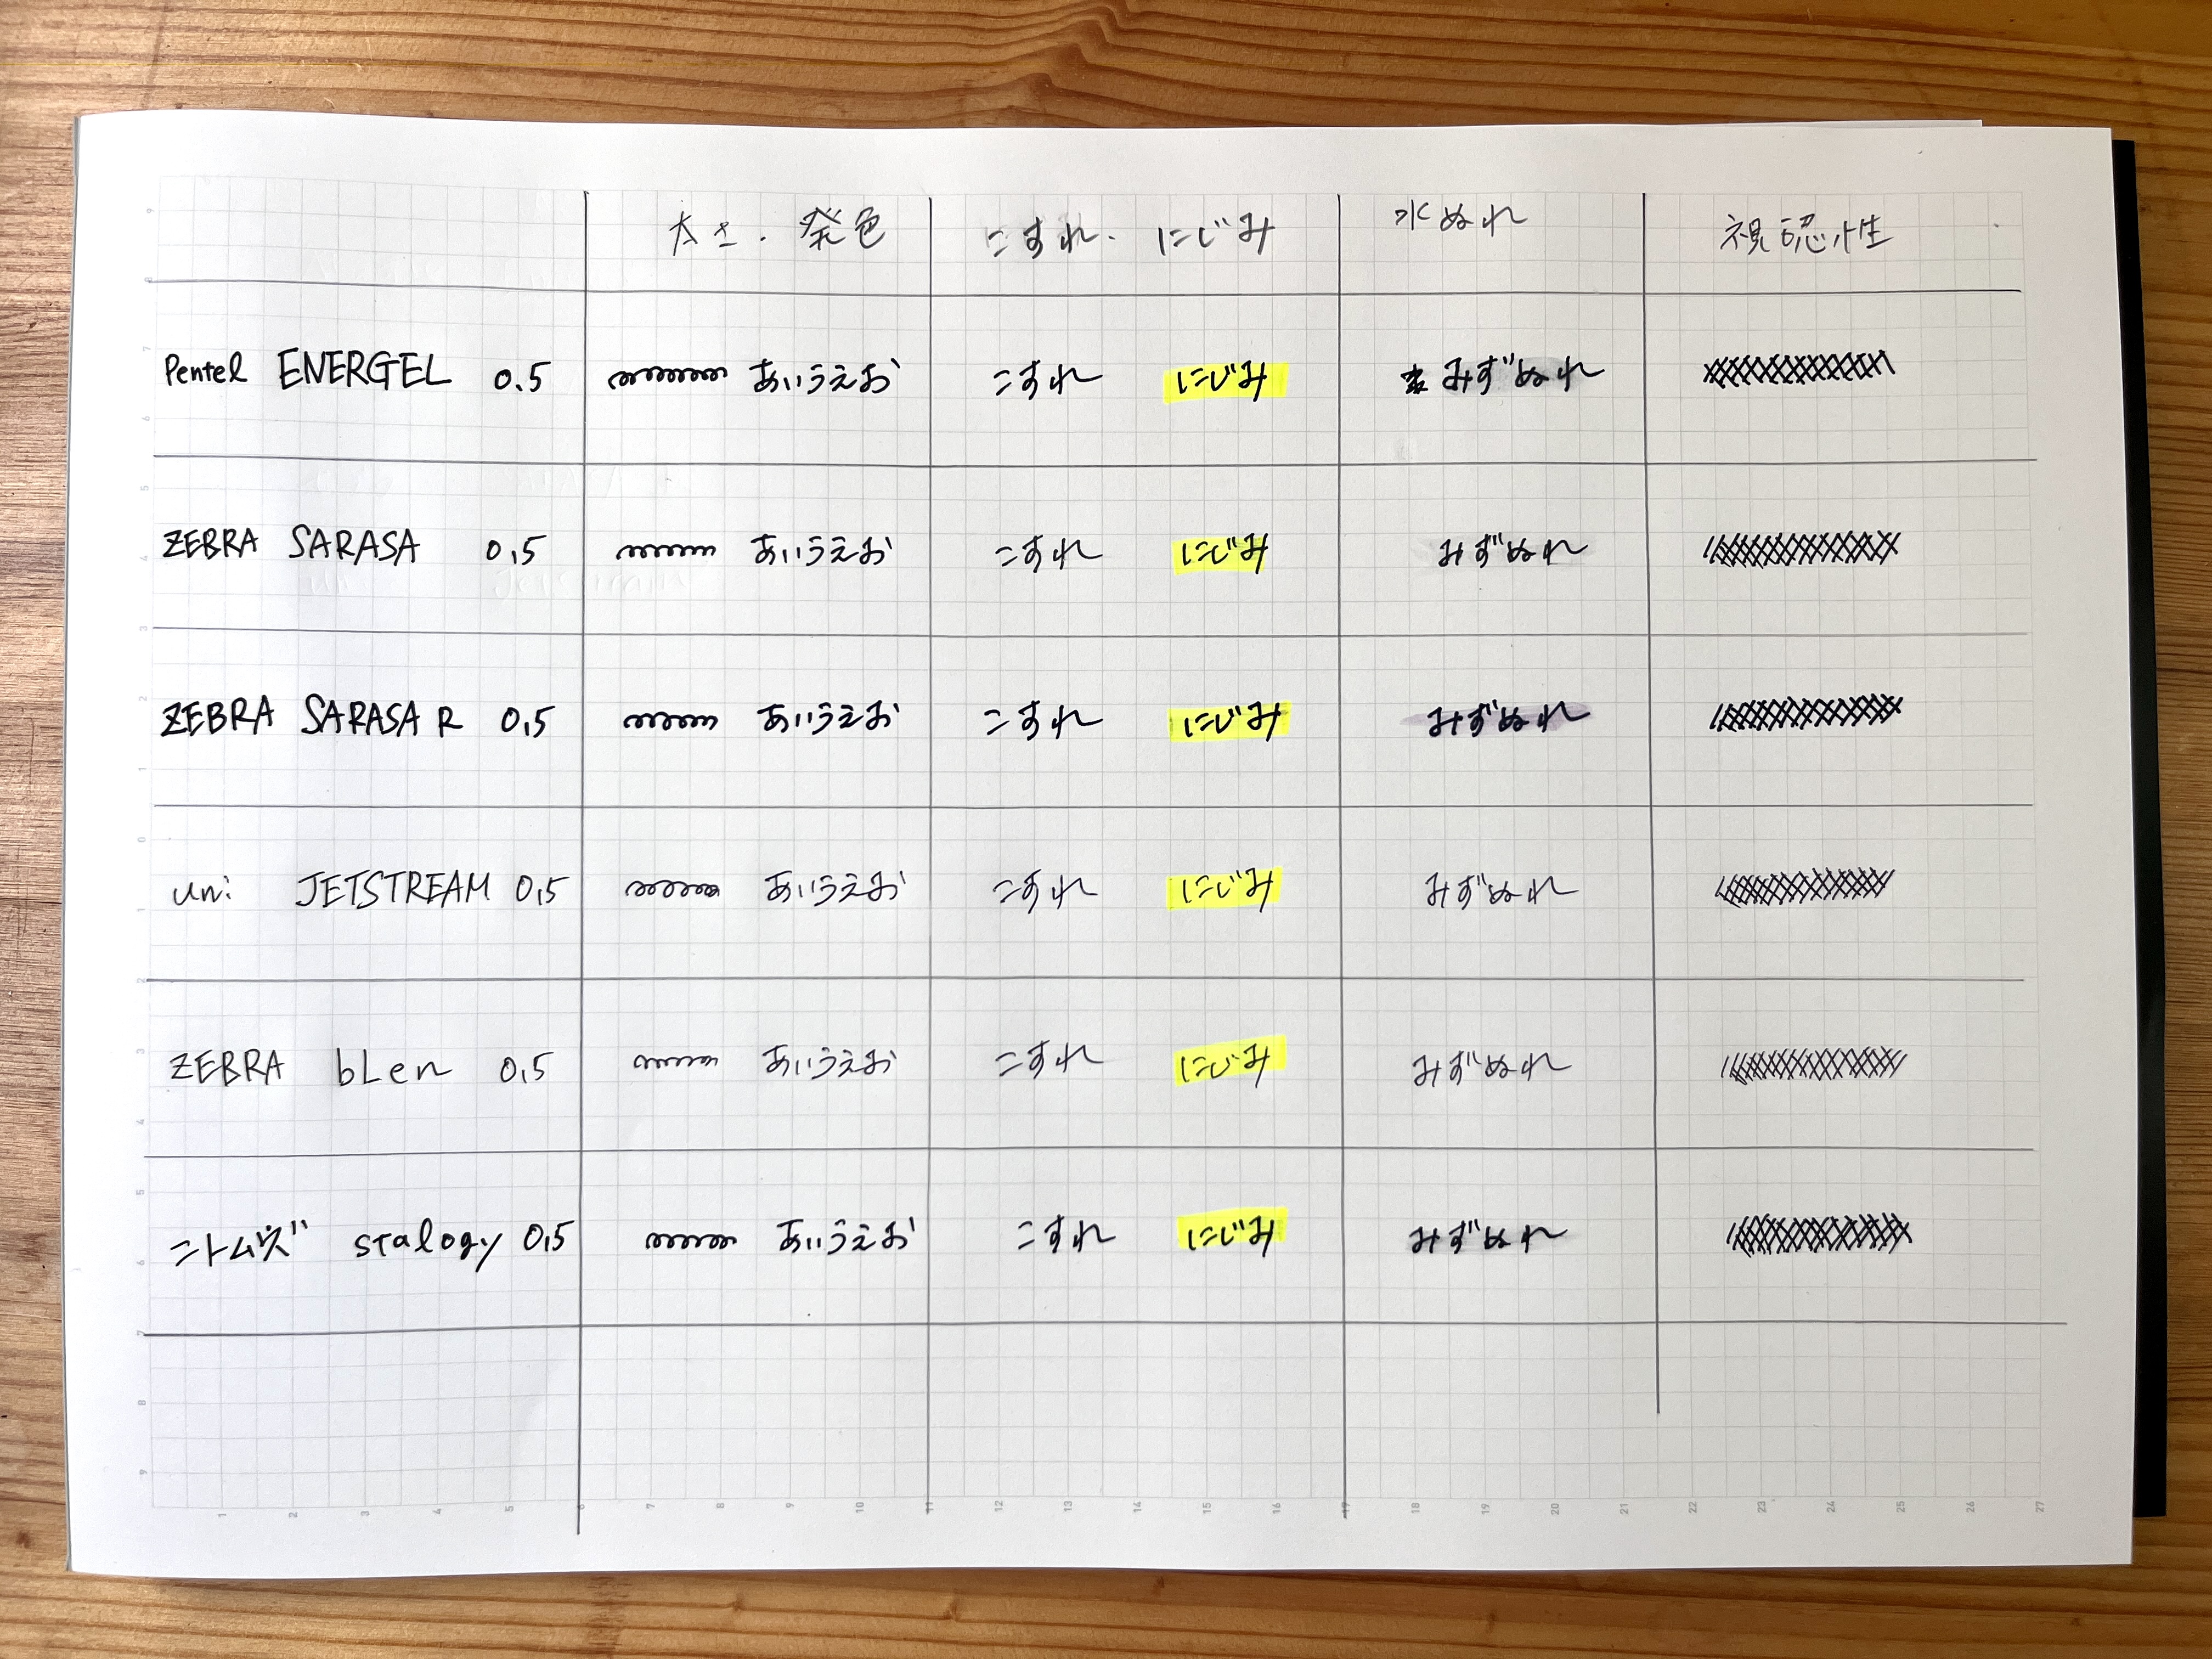 太さ・発色 こすれ・にじみ 水ぬれ 視認性
Pentel ENERGEL 0.5 あいうえお こすれ にじみ みずぬれ
ZEBRA SARASA 0.5 あいうえお こすれ にじみ みずぬれ
ZEBRA SARASA R 0.5 あいうえお こすれ にじみ みずぬれ
uni JETSTREAM 0.5 あいうえお こすれ にじみ みずぬれ
ZEBRA bLen 0.5 あいうえお こすれ にじみ みずぬれ
ニトムズ stalogy 0.5 あいうえお こすれ にじみ みずぬれ
9
8
7
6
5
4
3
2
1
0
1
2
3
4
5
6
7
8
9
1 2 3 4 5 6 7 8 9 10 11 12 13 14 15 16 17 18 19 20 21 22 23 24 25 26 27